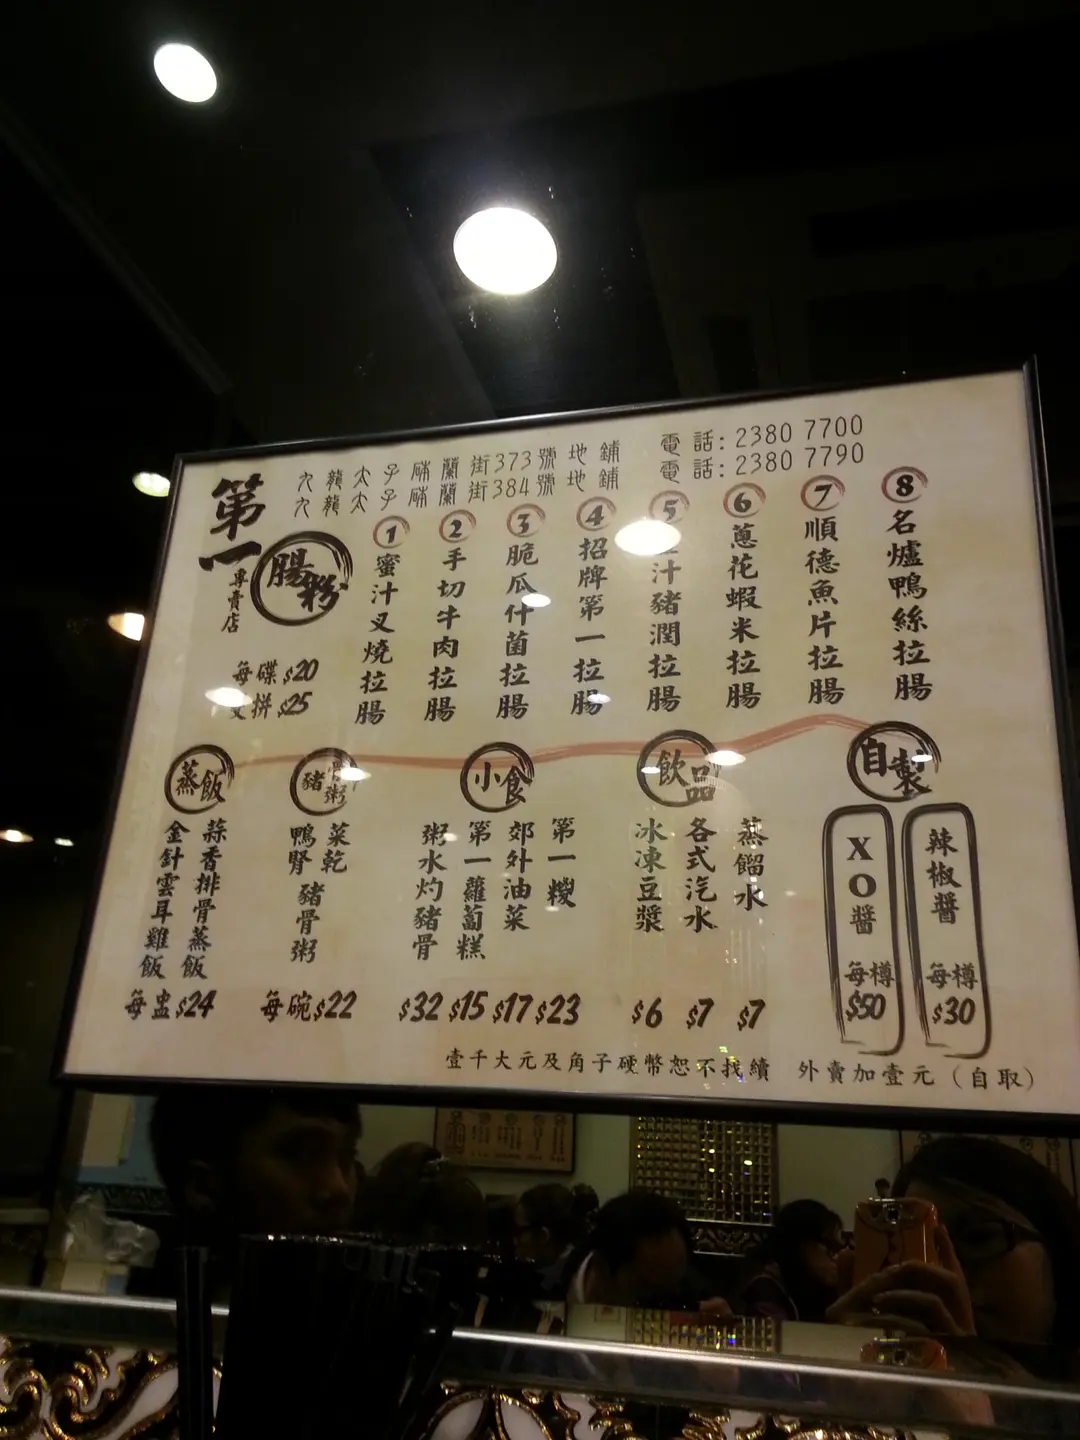 第一
腸粉
專賣店
九龍太子砵蘭街373號地鋪 電話:2380 7700
九龍太子砵蘭街384號地鋪 電話:2380 7790
每碟$20
拼$25
1 蜜汁叉燒拉腸
2 手切牛肉拉腸
3 脆瓜什菌拉腸
4 招牌第一拉腸
5 汁豬潤拉腸
6 蔥花蝦米拉腸
7 順德魚片拉腸
8 名爐鴨絲拉腸
蒸飯
金針雲耳雞飯
蒜香排骨蒸飯
每盅$24
豬骨粥
鴨腎菜乾豬骨粥
每碗$22
小食
粥水灼豬骨 $32
第一蘿蔔糕 $15
郊外油菜 $17
第一糉 $23
飲品
冰凍豆漿 $6
各式汽水 $7
蒸餾水 $7
自製
XO醬 每樽$50
辣椒醬 每樽$30
壹千大元及角子硬幣恕不找續 外賣加壹元(自取)